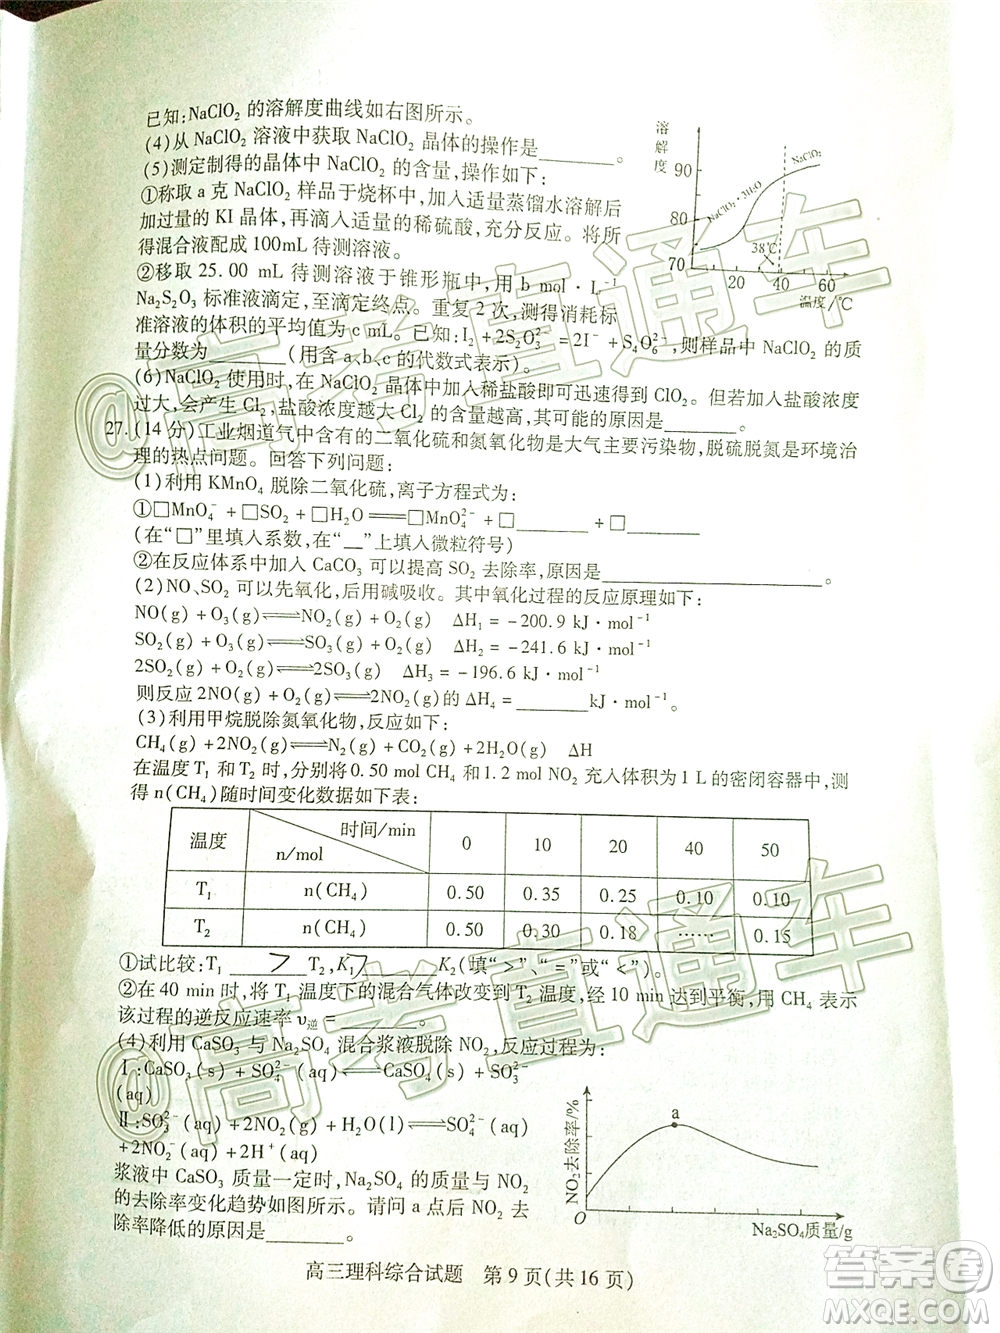 已知:NaClO₂ 的溶解度曲线如右图所示。
(4)从 NaClO₂ 溶液中获取 NaClO₂ 晶体的操作是________。
(5)测定制得的晶体中 NaClO₂ 的含量,操作如下:
①称取 a 克 NaClO₂ 样品于烧杯中,加入适量蒸馏水溶解后
加过量的 KI 晶体,再滴入适量的稀硫酸,充分反应。将所
得混合液配成 100mL 待测溶液。
②移取 25.00 mL 待测溶液于锥形瓶中,用 b mol·L⁻¹
Na₂S₂O₃ 标准液滴定,至滴定终点。重复 2 次,测得消耗标
准溶液的体积的平均值为 c mL。已知:I₂+2S₂O₃²⁻=2I⁻+S₄O₆²⁻,则样品中 NaClO₂ 的质
量分数为________(用含 a、b、c 的代数式表示)。
(6)NaClO₂ 使用时,在 NaClO₂ 晶体中加入稀盐酸即可迅速得到 ClO₂。但若加入盐酸浓度
过大,会产生 Cl₂,盐酸浓度越大 Cl₂ 的含量越高,其可能的原因是________。
溶解度
90
80
70
NaClO₂·3H₂O
NaClO₂
38℃
20 40 60
温度/℃
27. (14 分)工业烟道气中含有的二氧化硫和氮氧化物是大气主要污染物,脱硫脱氮是环境治
理的热点问题。回答下列问题:
(1)利用 KMnO₄ 脱除二氧化硫,离子方程式为:
①□MnO₄⁻+□SO₂+□H₂O═□MnO₄²⁻+□________+□________
(在“□”里填入系数,在“__”上填入微粒符号)
②在反应体系中加入 CaCO₃ 可以提高 SO₂ 去除率,原因是________________。
(2)NO、SO₂ 可以先氧化,后用碱吸收。其中氧化过程的反应原理如下:
NO(g)+O₃(g)⇌NO₂(g)+O₂(g) ΔH₁=-200.9 kJ·mol⁻¹
SO₂(g)+O₃(g)⇌SO₃(g)+O₂(g) ΔH₂=-241.6 kJ·mol⁻¹
2SO₂(g)+O₂(g)⇌2SO₃(g) ΔH₃=-196.6 kJ·mol⁻¹
则反应 2NO(g)+O₂(g)⇌2NO₂(g)的 ΔH₄=________kJ·mol⁻¹。
(3)利用甲烷脱除氮氧化物,反应如下:
CH₄(g)+2NO₂(g)⇌N₂(g)+CO₂(g)+2H₂O(g) ΔH
在温度 T₁ 和 T₂ 时,分别将0.50 mol CH₄ 和1.2 mol NO₂ 充入体积为 1 L 的密闭容器中,测
得 n(CH₄)随时间变化数据如下表:
温度 时间/min n/mol 0 10 20 40 50
T₁ n(CH₄) 0.50 0.35 0.25 0.10 0.10
T₂ n(CH₄) 0.50 0.30 0.18 …… 0.15
①试比较:T₁ ___>___ T₂,K₁ ___>___ K₂(填“>”、“=”或“<”)。
②在 40 min 时,将 T₁ 温度下的混合气体改变到 T₂ 温度,经 10 min 达到平衡,用 CH₄ 表示
该过程的逆反应速率 υ逆=________。
(4)利用 CaSO₃ 与 Na₂SO₄ 混合浆液脱除 NO₂,反应过程为:
Ⅰ:CaSO₃(s)+SO₄²⁻(aq)⇌CaSO₄(s)+SO₃²⁻
(aq)
Ⅱ:SO₃²⁻(aq)+2NO₂(g)+H₂O(l)⇌SO₄²⁻(aq)
+2NO₂⁻(aq)+2H⁺(aq)
浆液中 CaSO₃ 质量一定时,Na₂SO₄ 的质量与 NO₂
的去除率变化趋势如图所示。请问 a 点后 NO₂ 去
除率降低的原因是________。
NO₂去除率/%
a
O
Na₂SO₄质量/g
高三理科综合试题 第 9 页(共 16 页)
@高考直通车
@高考直通车
答案圈
MXQE.COM